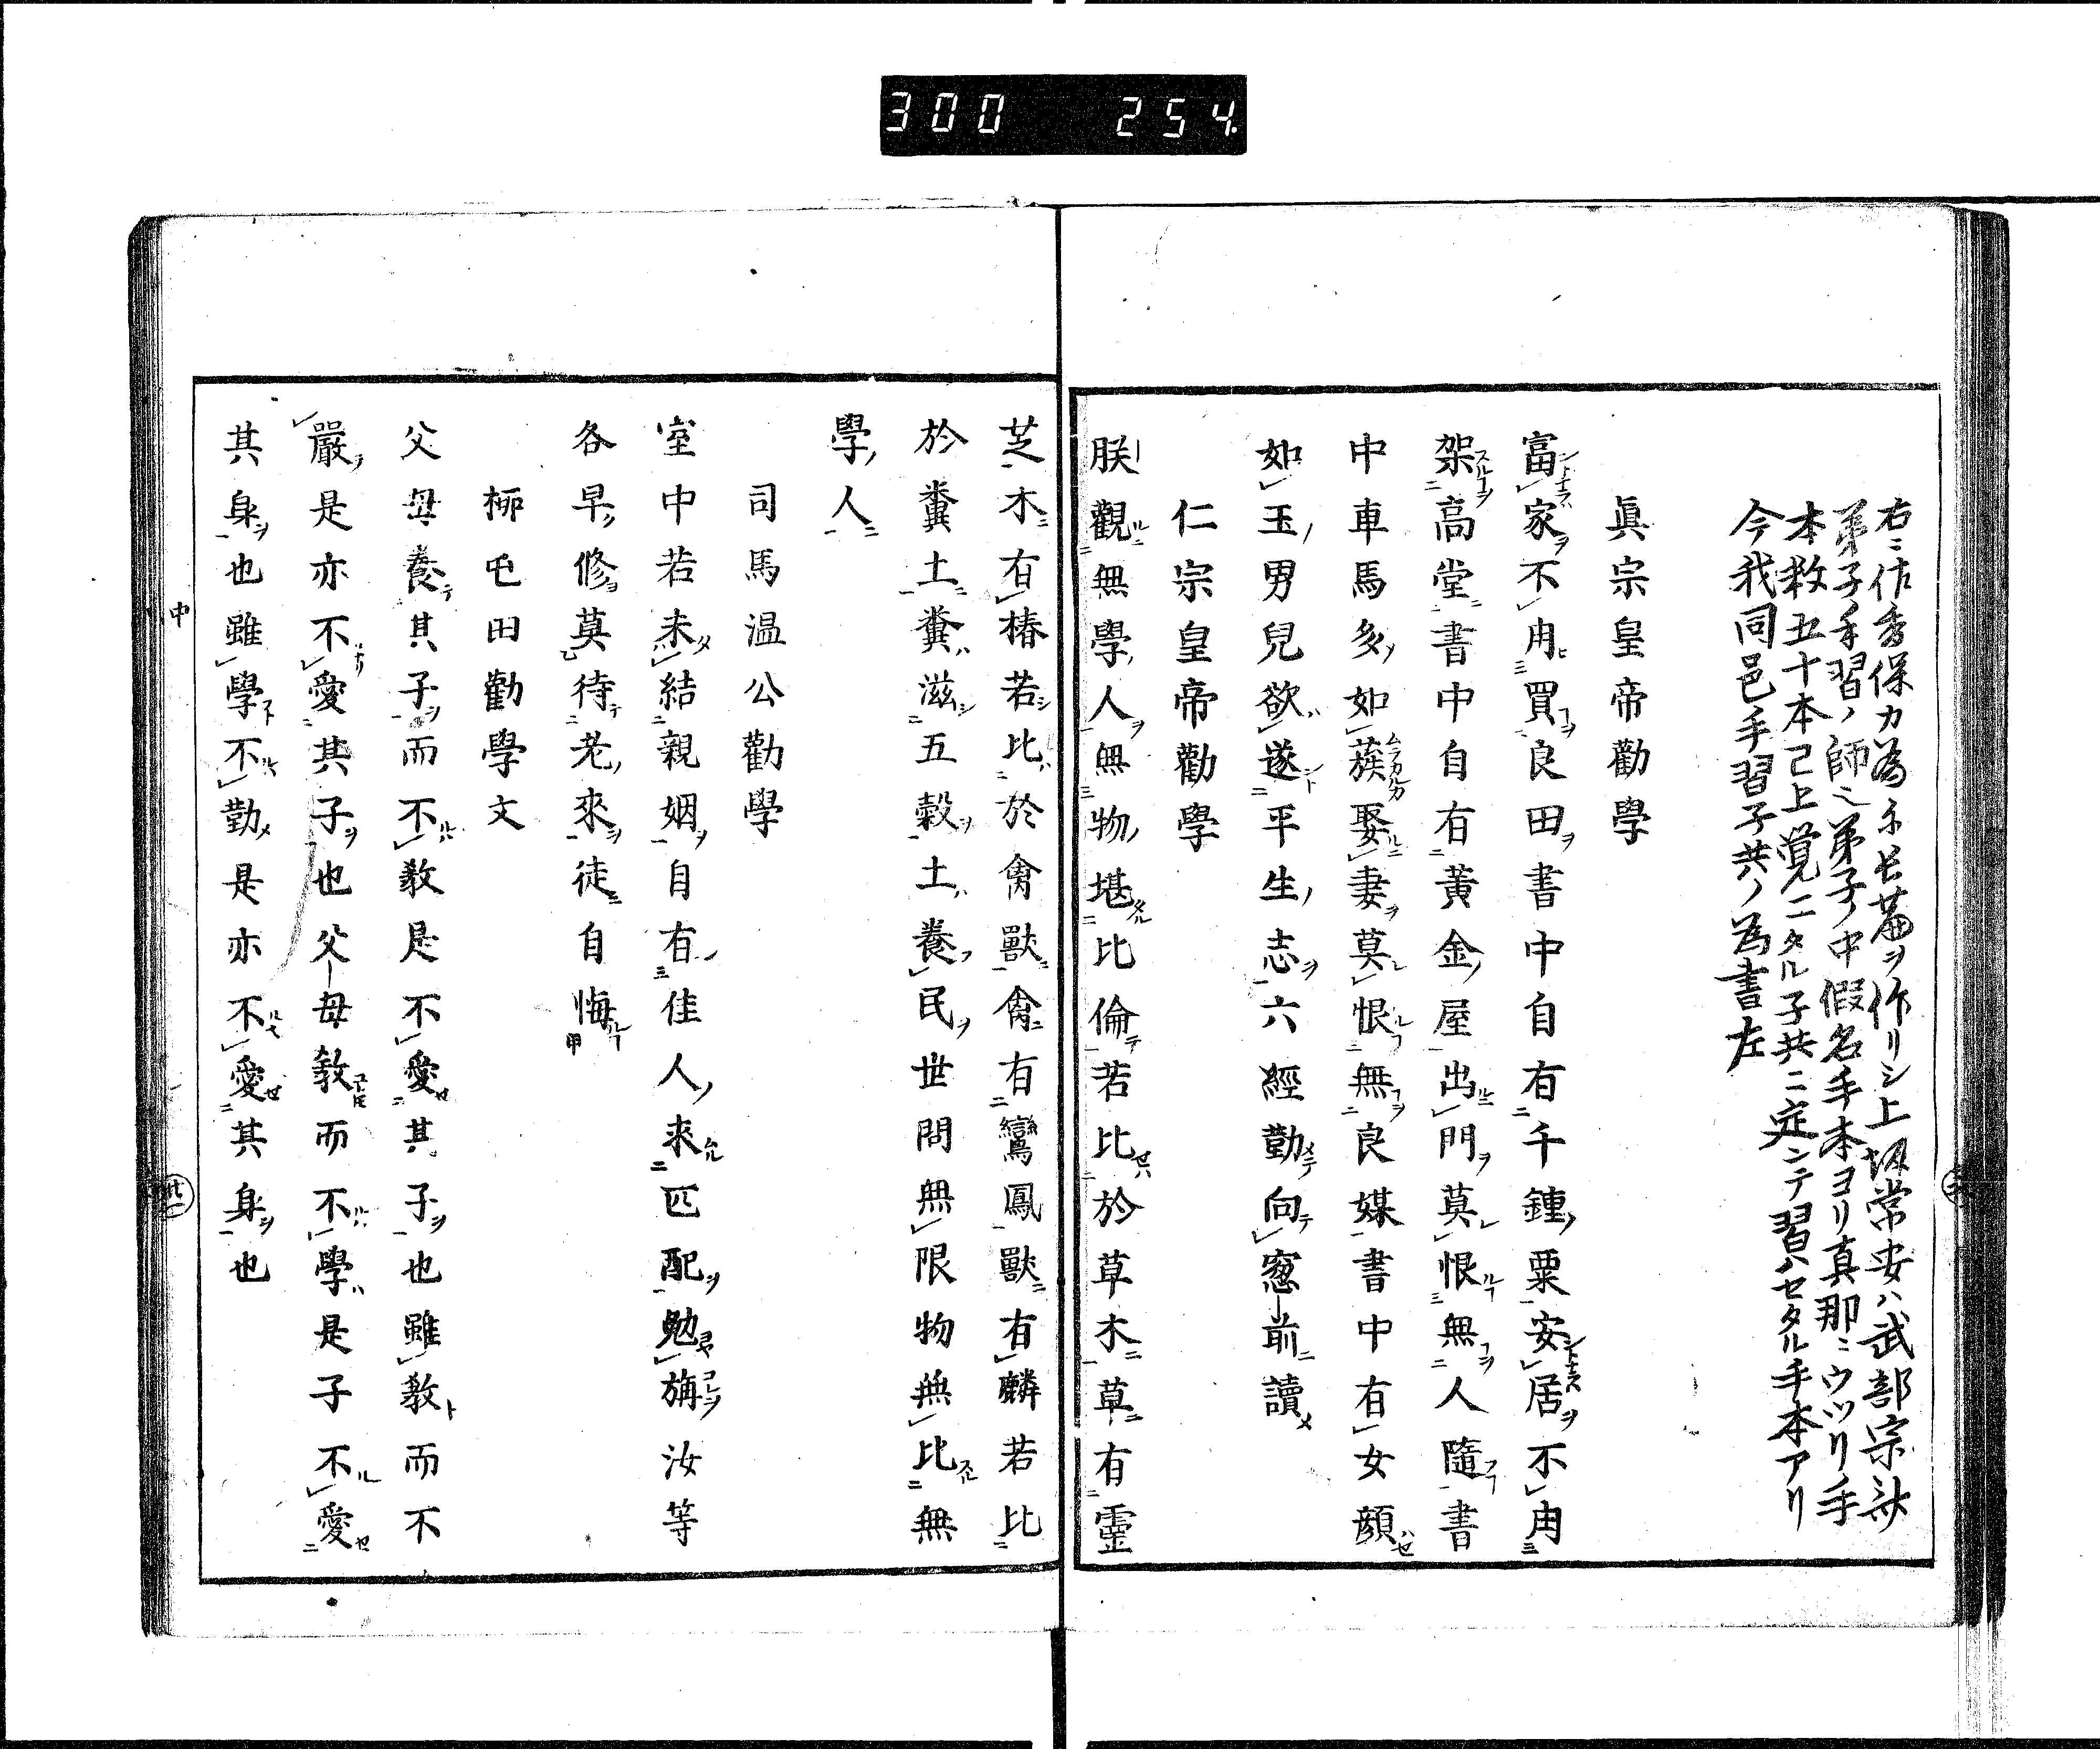 300 254
右ニ作秀保カ為ニ長篇ヲ作リシ上坂常安ハ武部宗
弟子手習ノ師之弟子ノ中假名手本ヨリ真那ニウツリ手
本数五十本己上覚ニタル子共ニ定ンテ習ハセタル手本アリ
今我同邑手習子共ノ為書左
眞宗皇帝勸學
富家不用買良田書中自有千鍾粟安居不用
架高堂書中自有黃金屋出門莫恨無人隨書
中車馬多如蔟娶妻莫恨無良媒書中有女顏
如玉男兒欲遂平生志六經勤向窓前讀
仁宗皇帝勸學
朕觀無學人無物堪比倫若比於草木草有靈
芝木有椿若比於禽獸禽有鸞鳳獸有麟若比
於糞土糞滋五穀土養民世間無限物無比無
學人
司馬温公勸學
室中若未結親姻自有佳人來匹配勉旃汝等
各早修莫待老來徒自悔
柳屯田勸學文
父母養其子而不教是不愛其子也雖教而不
嚴是亦不愛其子也父母教而不學是子不愛
其身也雖學不勤是亦不愛其身也
中
廿一